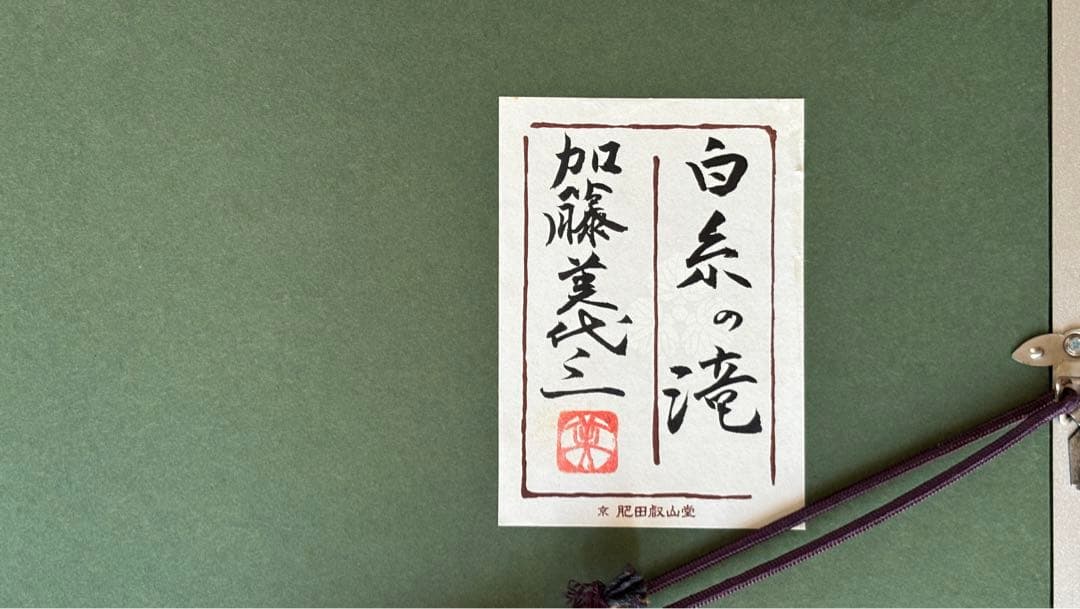 白糸の滝
加藤美代三
美
京 肥田叡山堂